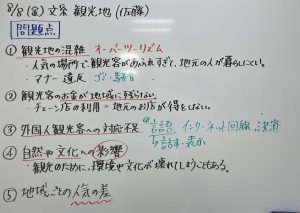 8/8(金) 文系 観光地 (佐藤)
問題点
① 観光地の混雑 オーバーツーリズム
・人気の場所で、観光客があふれすぎて、地元の人が暮らしにくい。
・マナー違反 ゴミ・騒音
② 観光客のお金が地域に残らない
・チェーン店の利用 = 地元のお店が得をしない。
③ 外国人観光客への対応不足 言語 インターネット回線、決済
話す・表示
④ 自然や文化への影響
観光のために、環境や文化が壊れてしまうこともある。
⑤ 地域ごとの人気の差